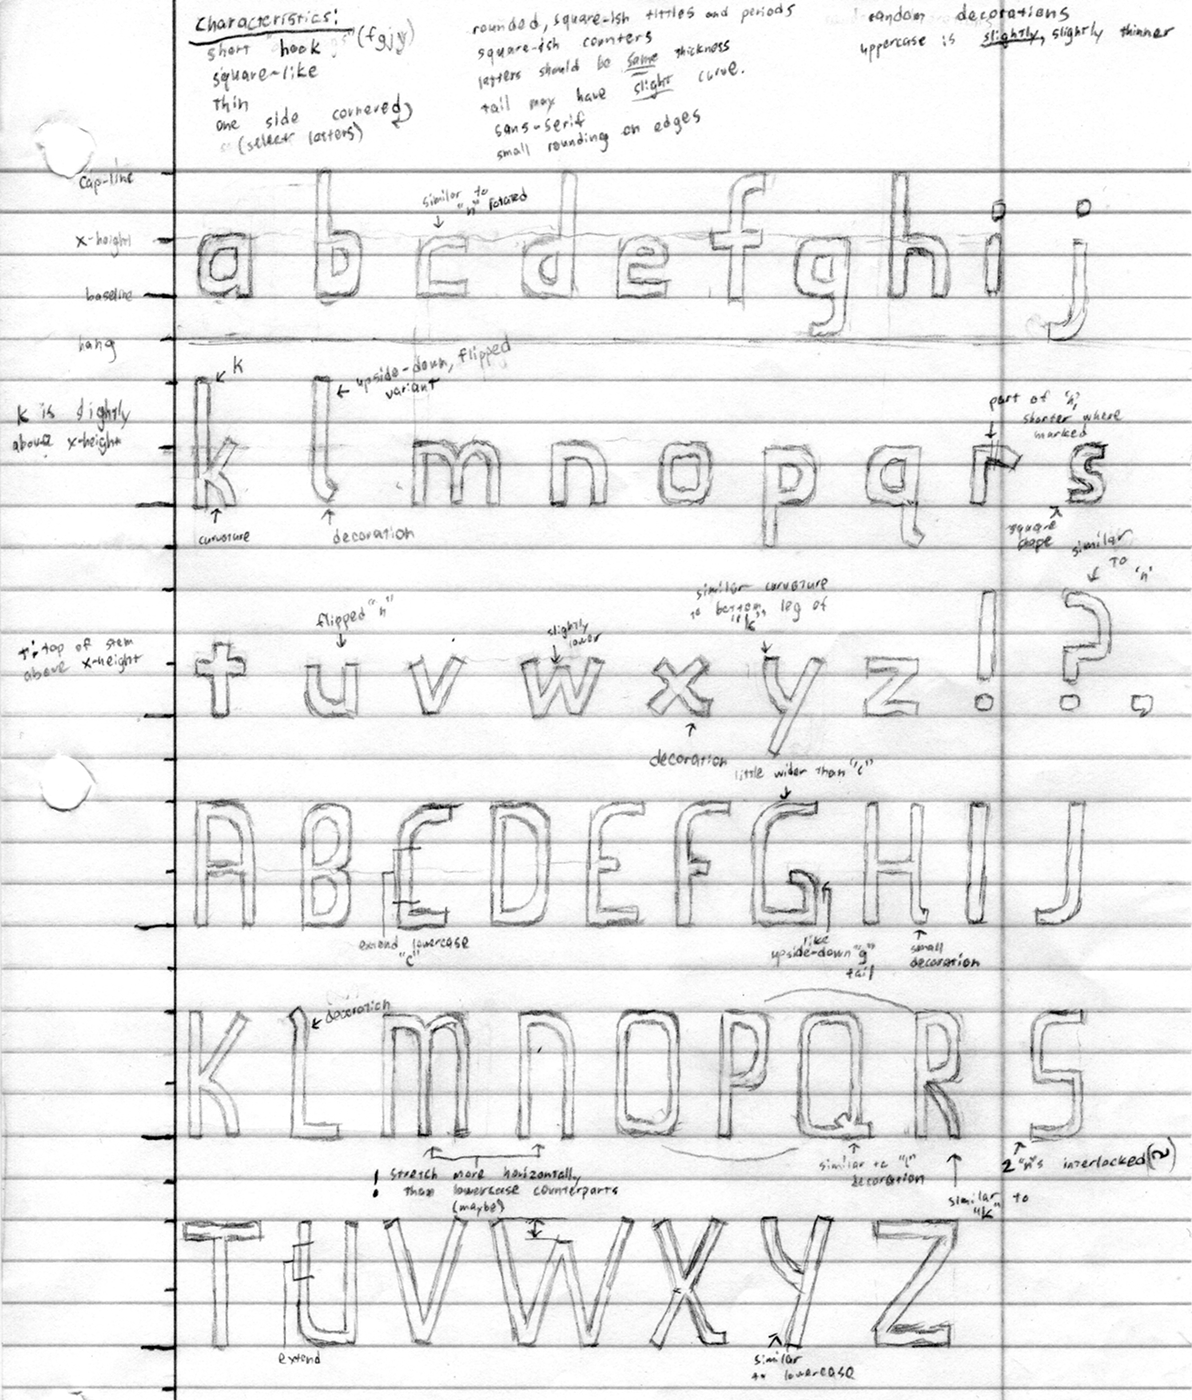 characteristics:
short hook (fgjy)
square-like
thin
one side cornered
(select letters)
rounded, square-ish tittles and periods
square-ish counters
letters should be same thickness
tail may have slight curve.
sans-serif
small rounding on edges
random decorations
uppercase is slightly, slightly thinner
cap-line
x-height
baseline
hang
similar to
"n" rotated
a b c d e f g h i j
k
upside-down, flipped
variant
k is slightly
above x-height
part of "n",
shorter where
marked
k l m n o p q r s
curvature
decoration
square
shape
similar
to "n"
flipped "n"
slightly
lower
similar curvature
to bottom leg of
"k"
t: top of stem
above x-height
t u v w x y z ! ? ,
decoration
little wider than "c"
A B C D E F G H I J
extend lowercase
"c"
like
upside-down "g"
tail
small
decoration
decoration
K L M N O P Q R S
! stretch more horizontally
than lowercase counterparts
(maybe)
similar to "l"
decoration
similar to
"k"
2 "n"s interlocked (2)
T U V W X Y Z
extend
similar
to lowercase